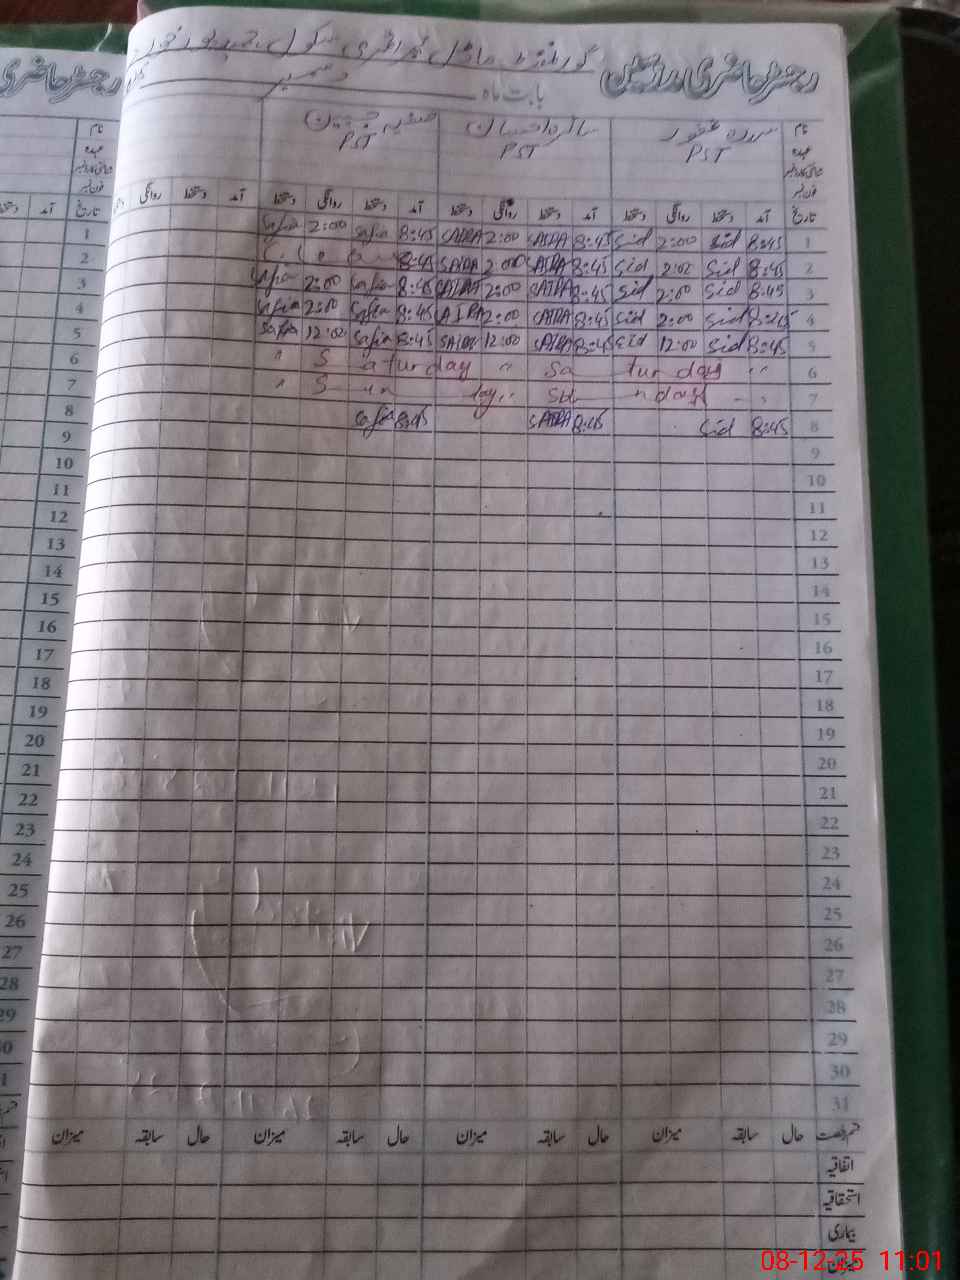 رجسٹر حاضری مدرسین گورنمنٹ ماڈل پرائمری سکول
بابت ماہ دسمبر
نام
عہدہ
شناختی کارڈ نمبر
فون نمبر
PST PST PST
تاریخ آمد دستخط روانگی دستخط آمد دستخط روانگی دستخط آمد دستخط روانگی دستخط آمد دستخط روانگی
1 8:45 Sid 2:00 Sid 8:45 SAIRA 2:00 SAIRA 8:45 Safia 2:00 Safia 1
2 8:45 Sid 2:00 Sid 8:45 SAIRA 2:00 SAIRA 8:45 2
3 8:45 Sid 2:00 Sid 8:45 SAIRA 2:00 SAIRA 8:45 Safia 2:00 Safia 3
4 8:45 Sid 2:00 Sid 8:45 SAIRA 2:00 SAIRA 8:45 Safia 2:00 Safia 4
5 8:45 Sid 12:00 Sid 8:45 SAIRA 12:00 SAIRA 8:45 Safia 12:00 Safia 5
6 " S a tur day " Sa tur day " 6
7 " S un day " Su n day " 7
8 8:45 Sid 8:45 SAIRA 8:45 Safia 8
9 9
10 10
11 11
12 12
13 13
14 14
15 15
16 16
17 17
18 18
19 19
20 20
21 21
22 22
23 23
24 24
25 25
26 26
27 27
28 28
29 29
30
31
قسم رخصت حال سابقہ میزان حال سابقہ میزان حال سابقہ میزان حال سابقہ میزان
اتفاقیہ
استحقاقیہ
بیماری
میزان
08-12-25 11:01